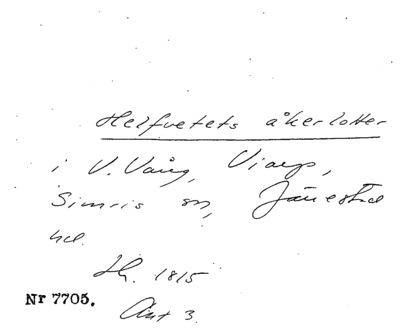 Helfvetets åkerlotter
i V. Vång, Viarp,
Simris sn, Järrestad
hd.
Lh. 1815
Nr 7705.
Akt 3.